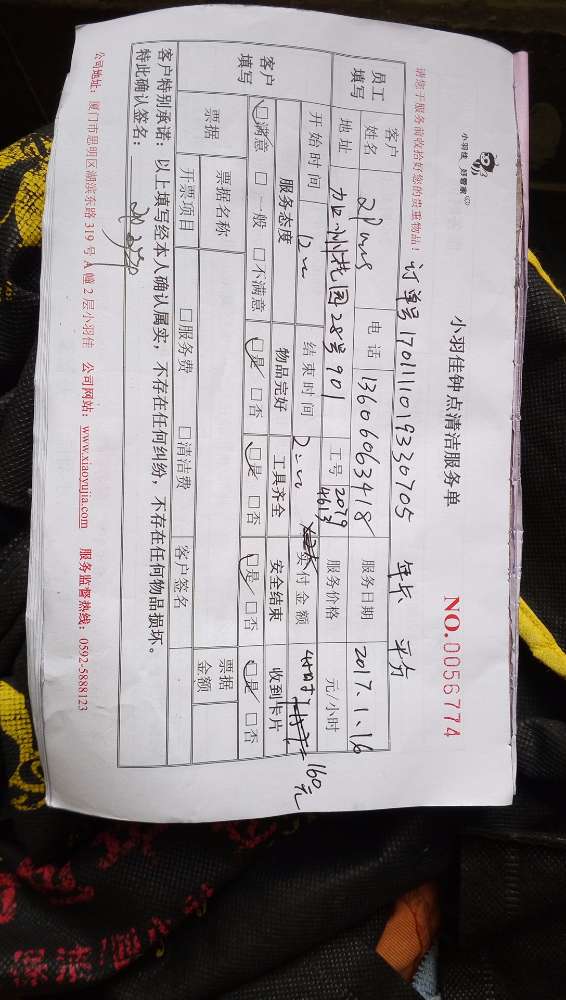 小羽佳 好管家
小羽佳钟点清洁服务单
NO.0056774
请您于服务前收拾好您的贵重物品！
订单号170111019330705
平方
员工填写
客户姓名
电话 13606063418
服务日期 2017.1.16
地址 28号901
工号 2079
4613
服务价格 元/小时
开始时间
结束时间
付金额
160元
客户填写
服务态度
物品完好
工具齐全
安全结束
收到卡片
☑满意 □一般 □不满意
☑是 □否
☑是 □否
☑是 □否
☑是 □否
票据
票据名称
票据金额
开票项目
□服务费 □清洁费
客户签名
客户特别承诺：以上填写经本人确认属实，不存在任何纠纷，不存在任何物品损坏。
特此确认签名：
公司地址：厦门市思明区湖滨东路319号A幢2层小羽佳 公司网站：www.xiaoyujia.com 服务监督热线：0592-5888123